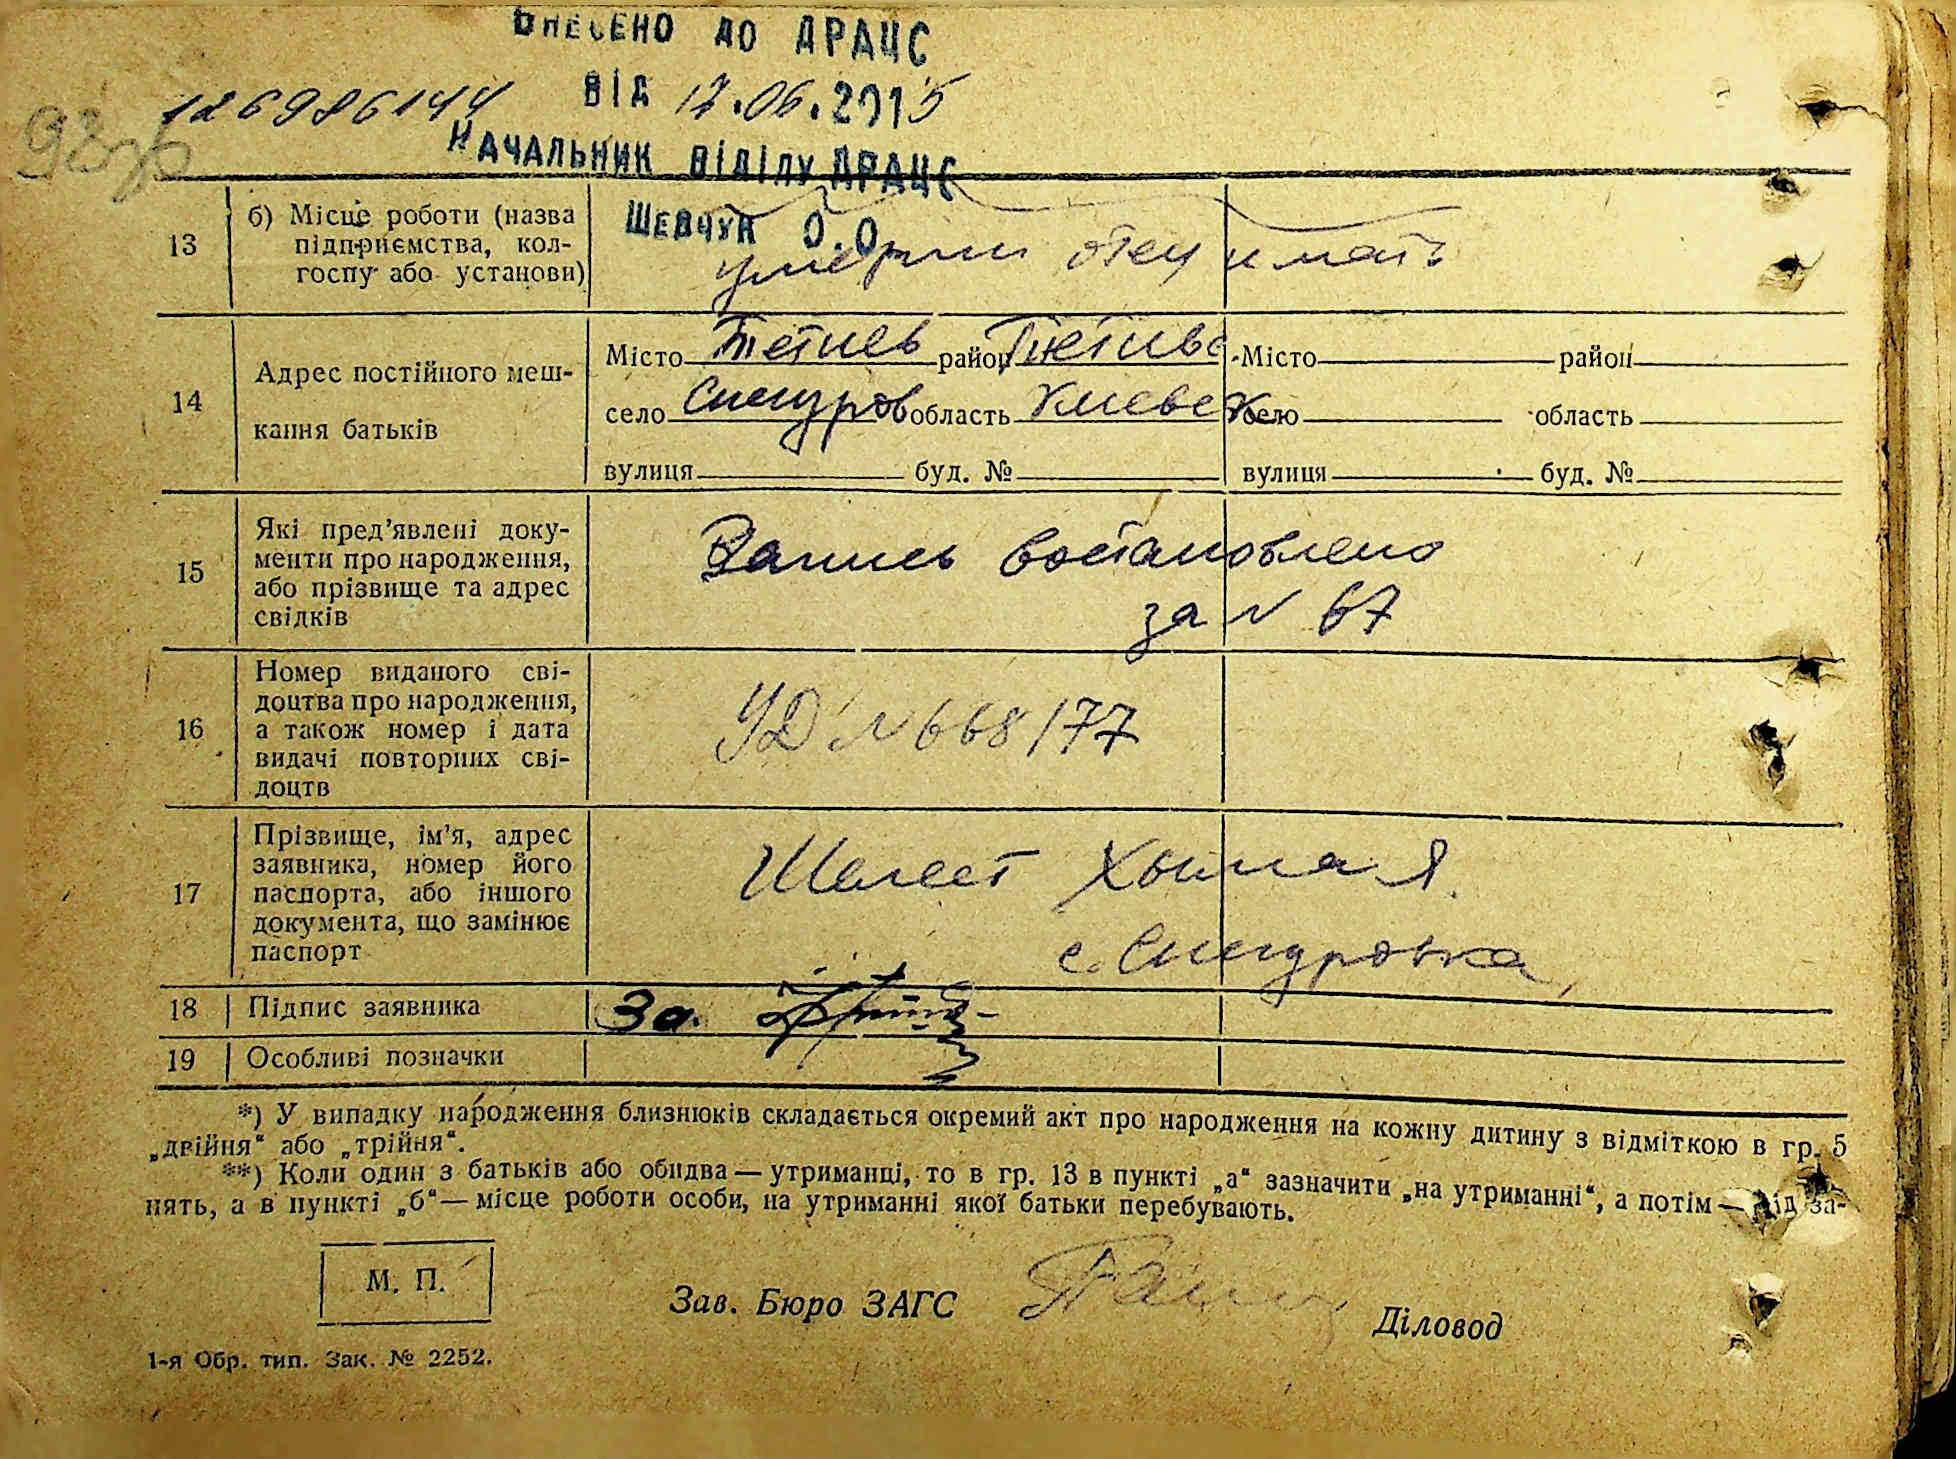 ВНЕСЕНО ДО ДРАЦС
126986144 ВІД 12.06.2015
НАЧАЛЬНИК ВІДІЛУ ДРАЦС
ШЕВЧУК О.О.
13 б) Місце роботи (назва
підприємства, кол-
госпу або установи)
умерли отец и мать
14 Адрес постійного меш-
кання батьків
Місто Тетиев район Тетиевс. Місто район
село Снегуров область Киевск село область
вулиця буд. № вулиця буд. №
15 Які пред’явлені доку-
менти про народження,
або прізвище та адрес
свідків
Запись востановлено
за № 67
16 Номер виданого сві-
доцтва про народження,
а також номер і дата
видачі повторних сві-
доцтв
УД № 668177
17 Прізвище, ім’я, адрес
заявника, номер його
паспорта, або іншого
документа, що замінює
паспорт
Шелест Хыма Я.
с. Снегуровка,
18 Підпис заявника За.
19 Особливі позначки
*) У випадку народження близнюків складається окремий акт про народження на кожну дитину з відміткою в гр. 5
„двійня“ або „трійня“.
**) Коли один з батьків або обидва — утриманці, то в гр. 13 в пункті „а“ зазначити „на утриманні“, а потім — під за-
нять, а в пункті „б“ — місце роботи особи, на утриманні якої батьки перебувають.
М. П.
Зав. Бюро ЗАГС Діловод
1-я Обр. тип. Зак. № 2252.